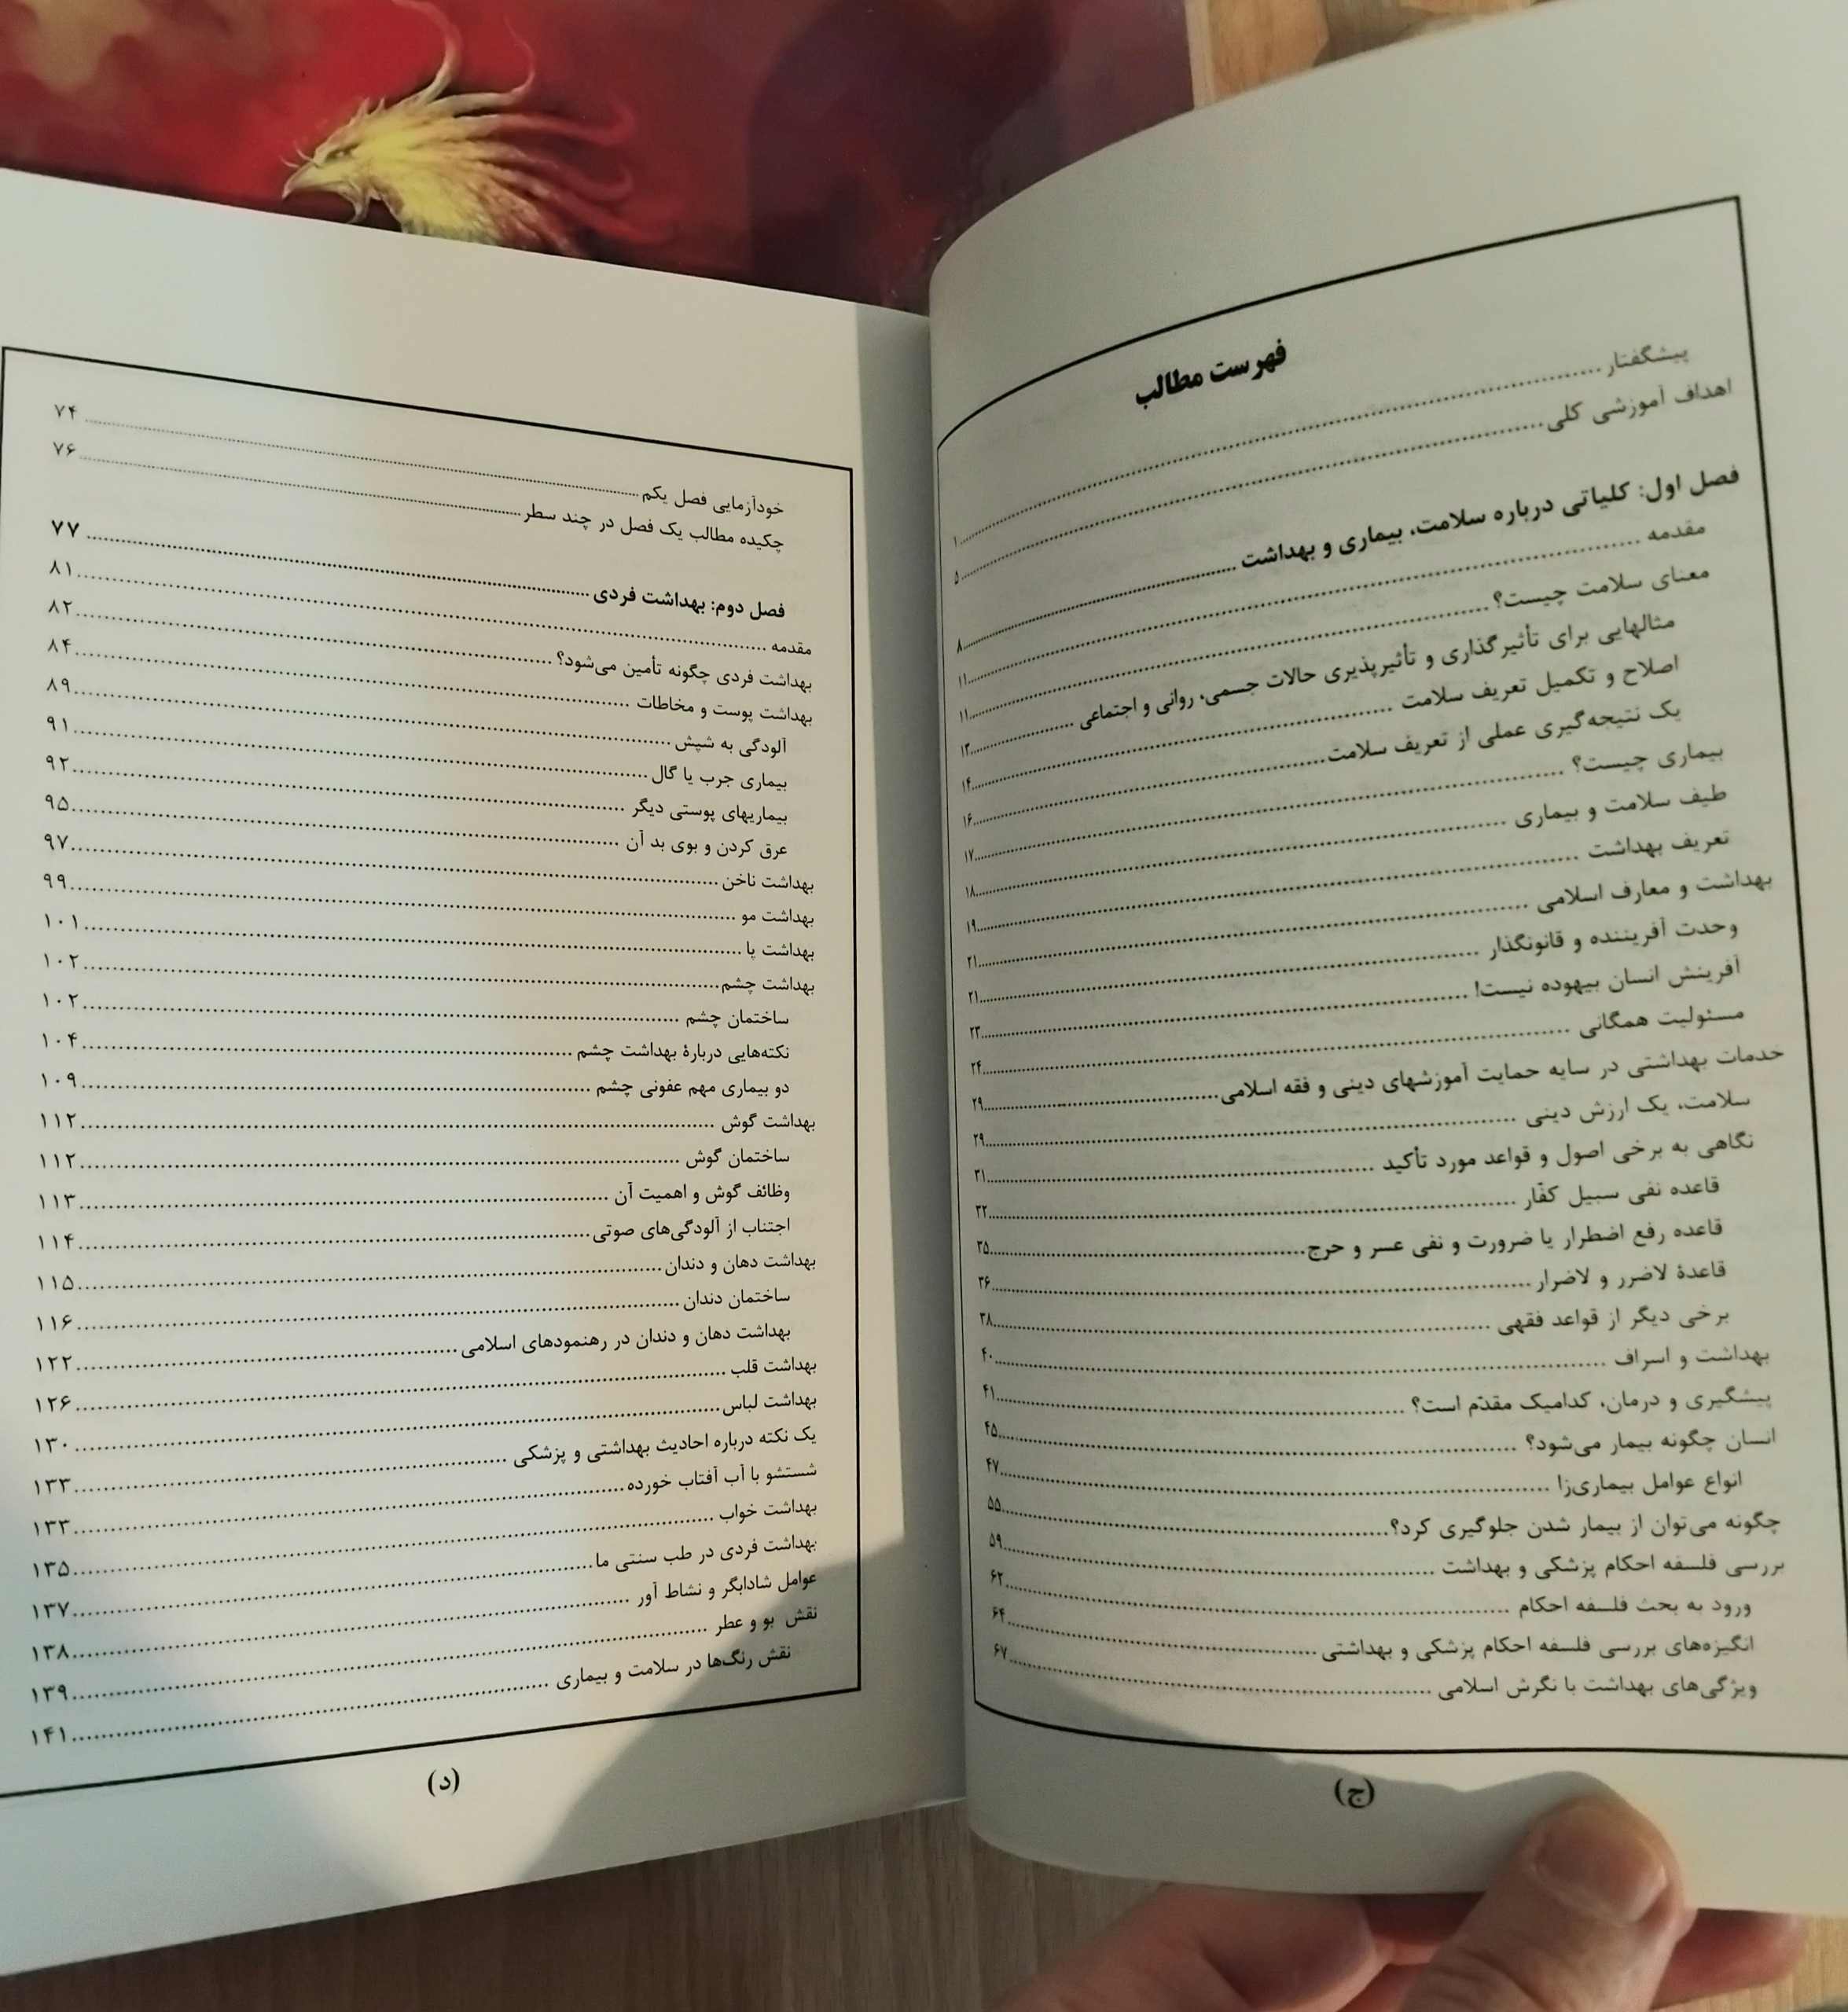 فهرست مطالب
پیشگفتار ........ ۱
اهداف آموزشی کلی ........ ۵
فصل اول: کلیاتی درباره سلامت، بیماری و بهداشت ........ ۸
مقدمه ........ ۱۱
معنای سلامت چیست؟ ........ ۱۱
مثالهایی برای تأثیرگذاری و تأثیرپذیری حالات جسمی، روانی و اجتماعی ........ ۱۲
اصلاح و تکمیل تعریف سلامت ........ ۱۴
یک نتیجه‌گیری عملی از تعریف سلامت ........ ۱۶
بیماری چیست؟ ........ ۱۷
طیف سلامت و بیماری ........ ۱۸
تعریف بهداشت ........ ۱۹
بهداشت و معارف اسلامی ........ ۲۱
وحدت آفریننده و قانونگذار ........ ۲۱
آفرینش انسان بیهوده نیست! ........ ۲۳
مسئولیت همگانی ........ ۲۴
خدمات بهداشتی در سایه حمایت آموزشهای دینی و فقه اسلامی ........ ۲۹
سلامت، یک ارزش دینی ........ ۲۹
نگاهی به برخی اصول و قواعد مورد تأکید ........ ۳۱
قاعده نفی سبیل کفّار ........ ۳۲
قاعده رفع اضطرار یا ضرورت و نفی عسر و حرج ........ ۳۵
قاعدهٔ لاضرر و لاضرار ........ ۳۶
برخی دیگر از قواعد فقهی ........ ۳۸
بهداشت و اسراف ........ ۴۰
پیشگیری و درمان، کدامیک مقدّم است؟ ........ ۴۱
انسان چگونه بیمار می‌شود؟ ........ ۴۵
انواع عوامل بیماری‌زا ........ ۴۷
چگونه می‌توان از بیمار شدن جلوگیری کرد؟ ........ ۵۵
بررسی فلسفه احکام پزشکی و بهداشت ........ ۵۹
ورود به بحث فلسفه احکام ........ ۶۲
انگیزه‌های بررسی فلسفه احکام پزشکی و بهداشتی ........ ۶۴
ویژگی‌های بهداشت با نگرش اسلامی ........ ۶۷
(ج)
خودآزمایی فصل یکم ........ ۷۴
چکیده مطالب یک فصل در چند سطر ........ ۷۶
فصل دوم: بهداشت فردی ........ ۷۷
مقدمه ........ ۸۱
بهداشت فردی چگونه تأمین می‌شود؟ ........ ۸۲
بهداشت پوست و مخاطات ........ ۸۴
آلودگی به شپش ........ ۸۹
بیماری جرب یا گال ........ ۹۱
بیماریهای پوستی دیگر ........ ۹۲
عرق کردن و بوی بد آن ........ ۹۵
بهداشت ناخن ........ ۹۷
بهداشت مو ........ ۹۹
بهداشت پا ........ ۱۰۱
بهداشت چشم ........ ۱۰۲
ساختمان چشم ........ ۱۰۲
نکته‌هایی دربارهٔ بهداشت چشم ........ ۱۰۴
دو بیماری مهم عفونی چشم ........ ۱۰۹
بهداشت گوش ........ ۱۱۲
ساختمان گوش ........ ۱۱۲
وظائف گوش و اهمیت آن ........ ۱۱۳
اجتناب از آلودگی‌های صوتی ........ ۱۱۴
بهداشت دهان و دندان ........ ۱۱۵
ساختمان دندان ........ ۱۱۶
بهداشت دهان و دندان در رهنمودهای اسلامی ........ ۱۲۲
بهداشت قلب ........ ۱۲۶
بهداشت لباس ........ ۱۳۰
یک نکته درباره احادیث بهداشتی و پزشکی ........ ۱۳۳
شستشو با آب آفتاب خورده ........ ۱۳۳
بهداشت خواب ........ ۱۳۵
بهداشت فردی در طب سنتی ما ........ ۱۳۷
عوامل شادابگر و نشاط آور ........ ۱۳۸
نقش بو و عطر ........ ۱۳۹
نقش رنگ‌ها در سلامت و بیماری ........ ۱۴۱
(د)